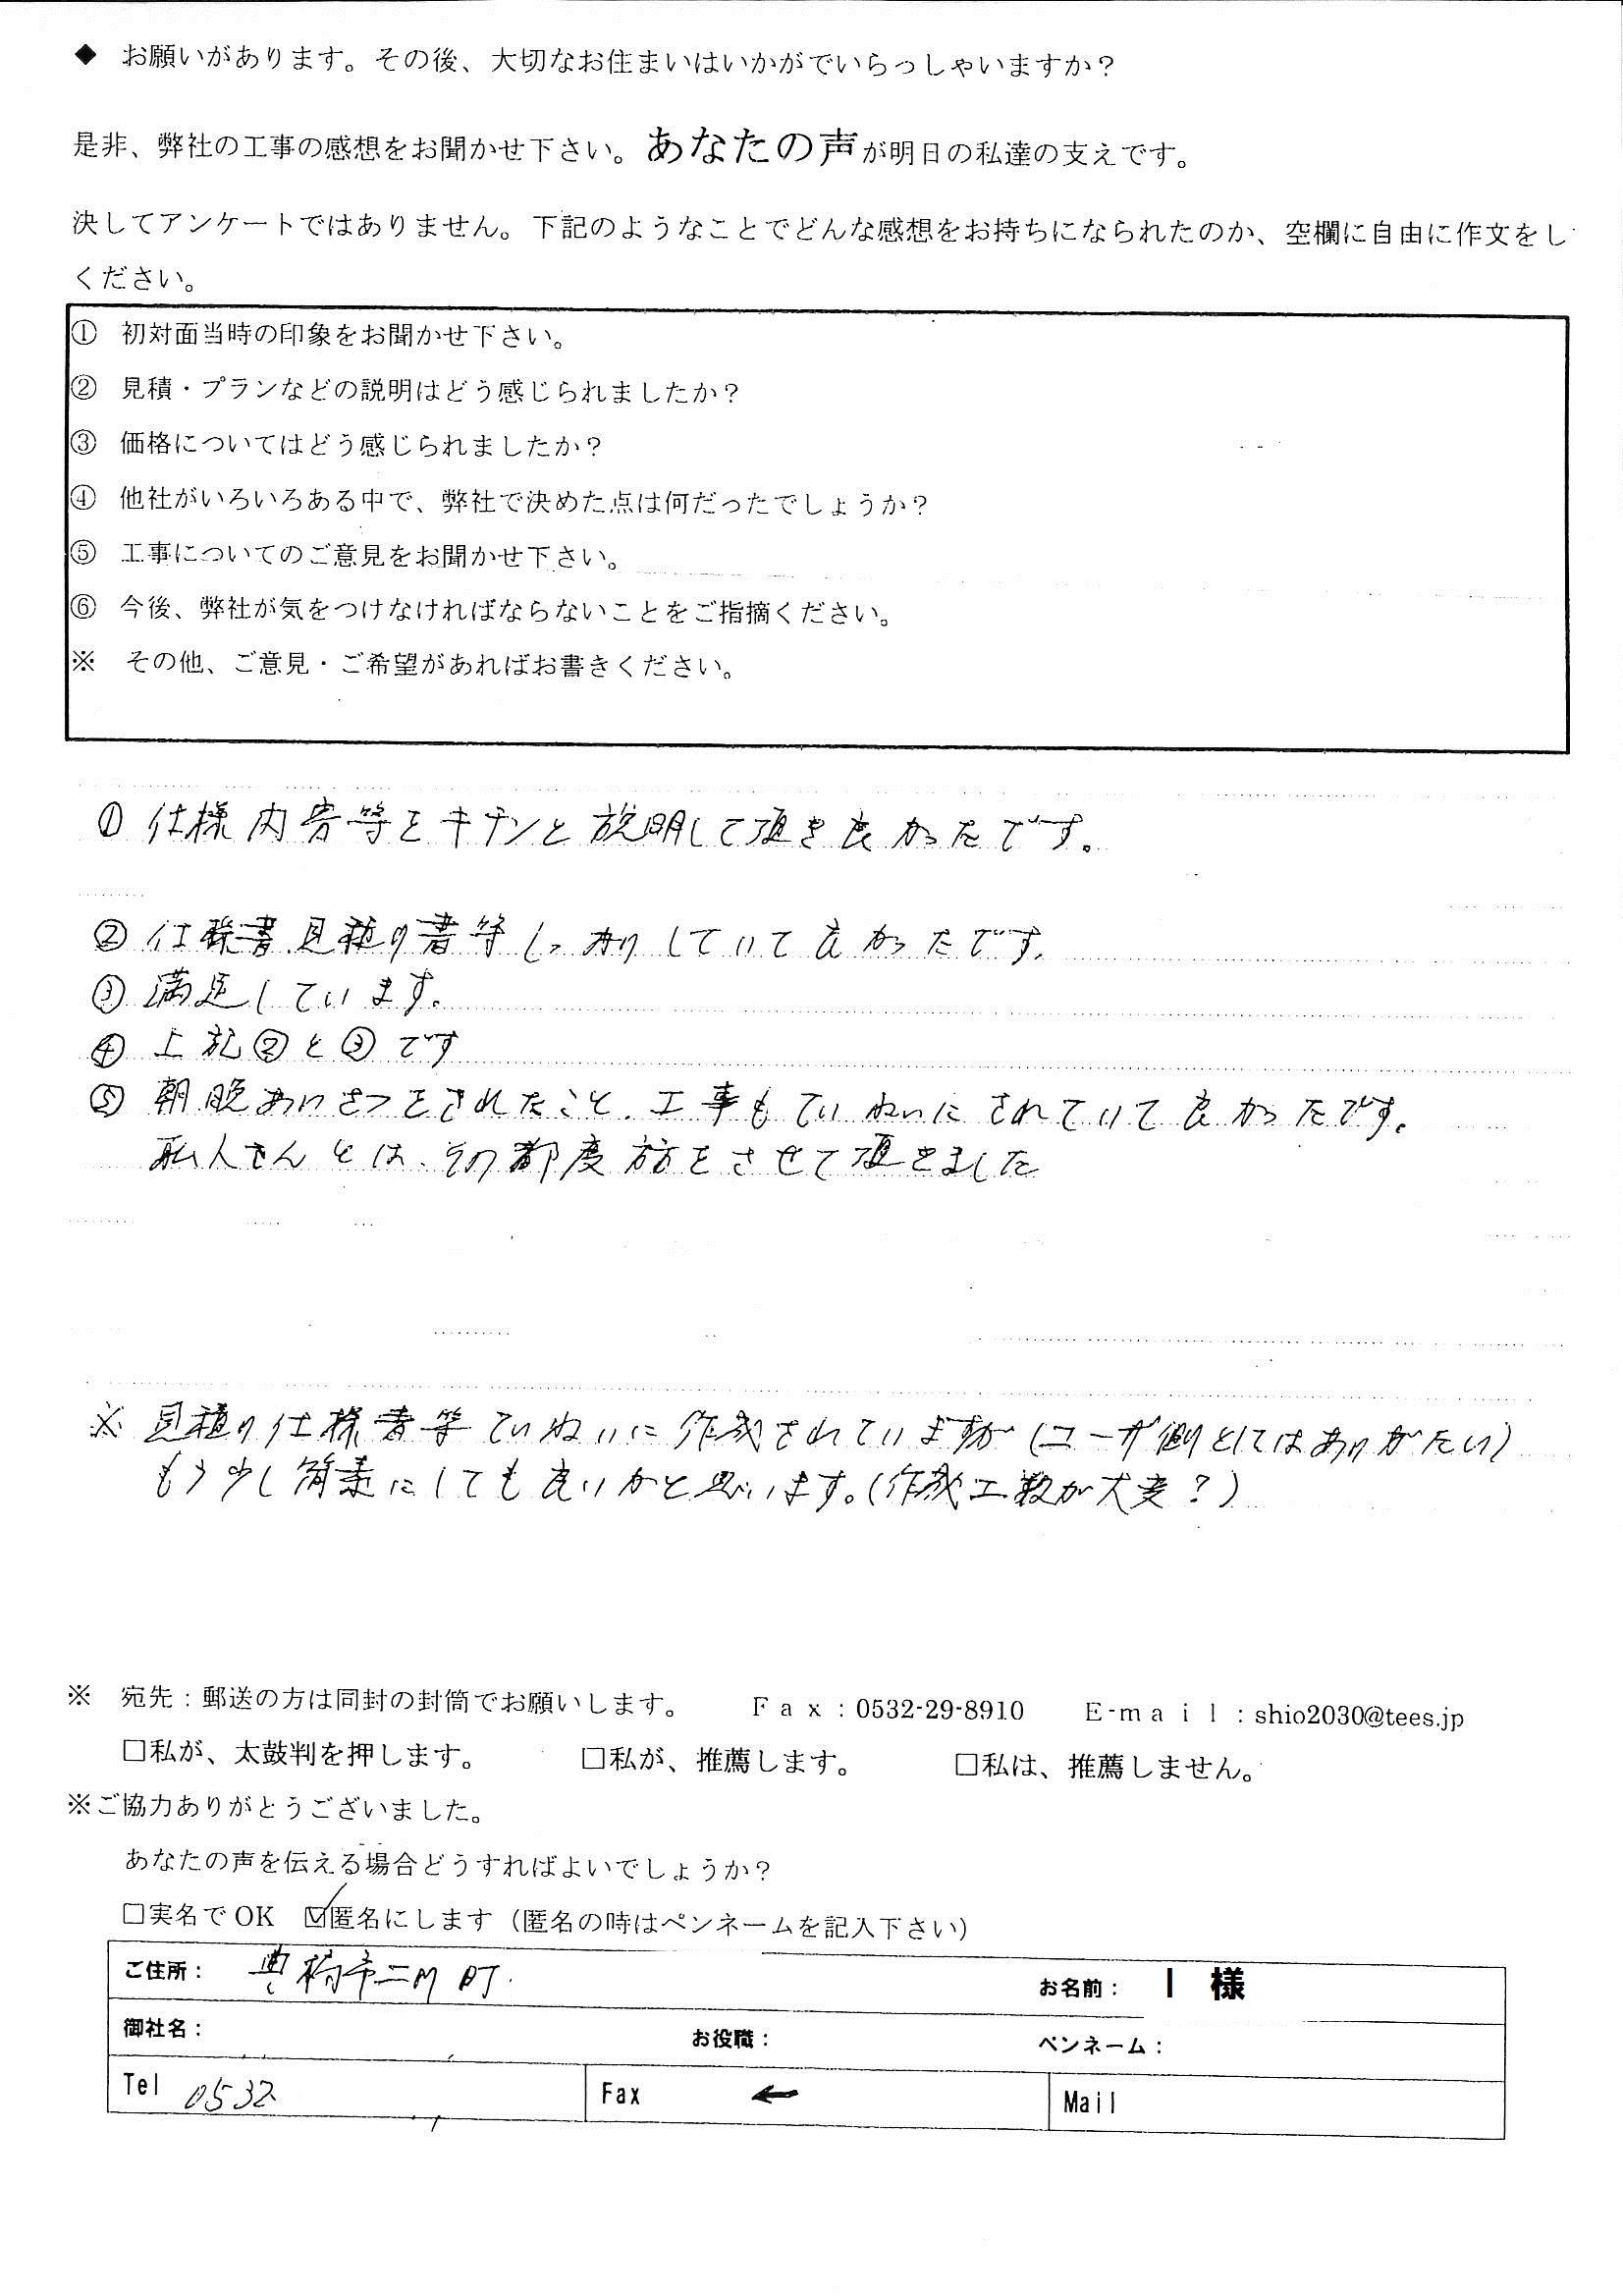 ◆ お願いがあります。その後、大切なお住まいはいかがでいらっしゃいますか？
是非、弊社の工事の感想をお聞かせ下さい。あなたの声が明日の私達の支えです。
決してアンケートではありません。下記のようなことでどんな感想をお持ちになられたのか、空欄に自由に作文をし
ください。
① 初対面当時の印象をお聞かせ下さい。
② 見積・プランなどの説明はどう感じられましたか？
③ 価格についてはどう感じられましたか？
④ 他社がいろいろある中で、弊社で決めた点は何だったでしょうか？
⑤ 工事についてのご意見をお聞かせ下さい。
⑥ 今後、弊社が気をつけなければならないことをご指摘ください。
※ その他、ご意見・ご希望があればお書きください。
① 仕様内容等をキチンと説明して頂き良かったです。
② 仕様書、見積り書等しっかりしていて良かったです。
③ 満足しています。
④ 上記②と③です
⑤ 朝晩あいさつをされたこと、工事もていねいにされていて良かったです。
職人さんとは、その都度 をさせて頂きました
※ 見積り仕様書等ていねいに作成されていますが（ユーザ側としてはありがたい）
もう少し簡素にしても良いかと思います。（作成工数が大変？）
※ 宛先：郵送の方は同封の封筒でお願いします。 Ｆａｘ：0532-29-8910 Ｅ-ｍａｉｌ：shio2030@tees.jp
□私が、太鼓判を押します。 □私が、推薦します。 □私は、推薦しません。
※ご協力ありがとうございました。
あなたの声を伝える場合どうすればよいでしょうか？
□実名でOK ☑匿名にします（匿名の時はペンネームを記入下さい）
ご住所： 豊橋市二川町 お名前： I 様
御社名： お役職： ペンネーム：
Tel 0532 Fax ← Mail